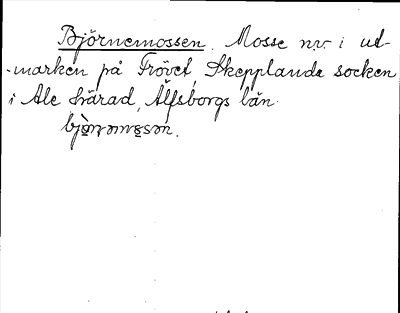 Björnemossen. Mosse n.v. i ut-
marken på Frövet, Skepplanda socken
i Ale härad, Älfsborgs län.